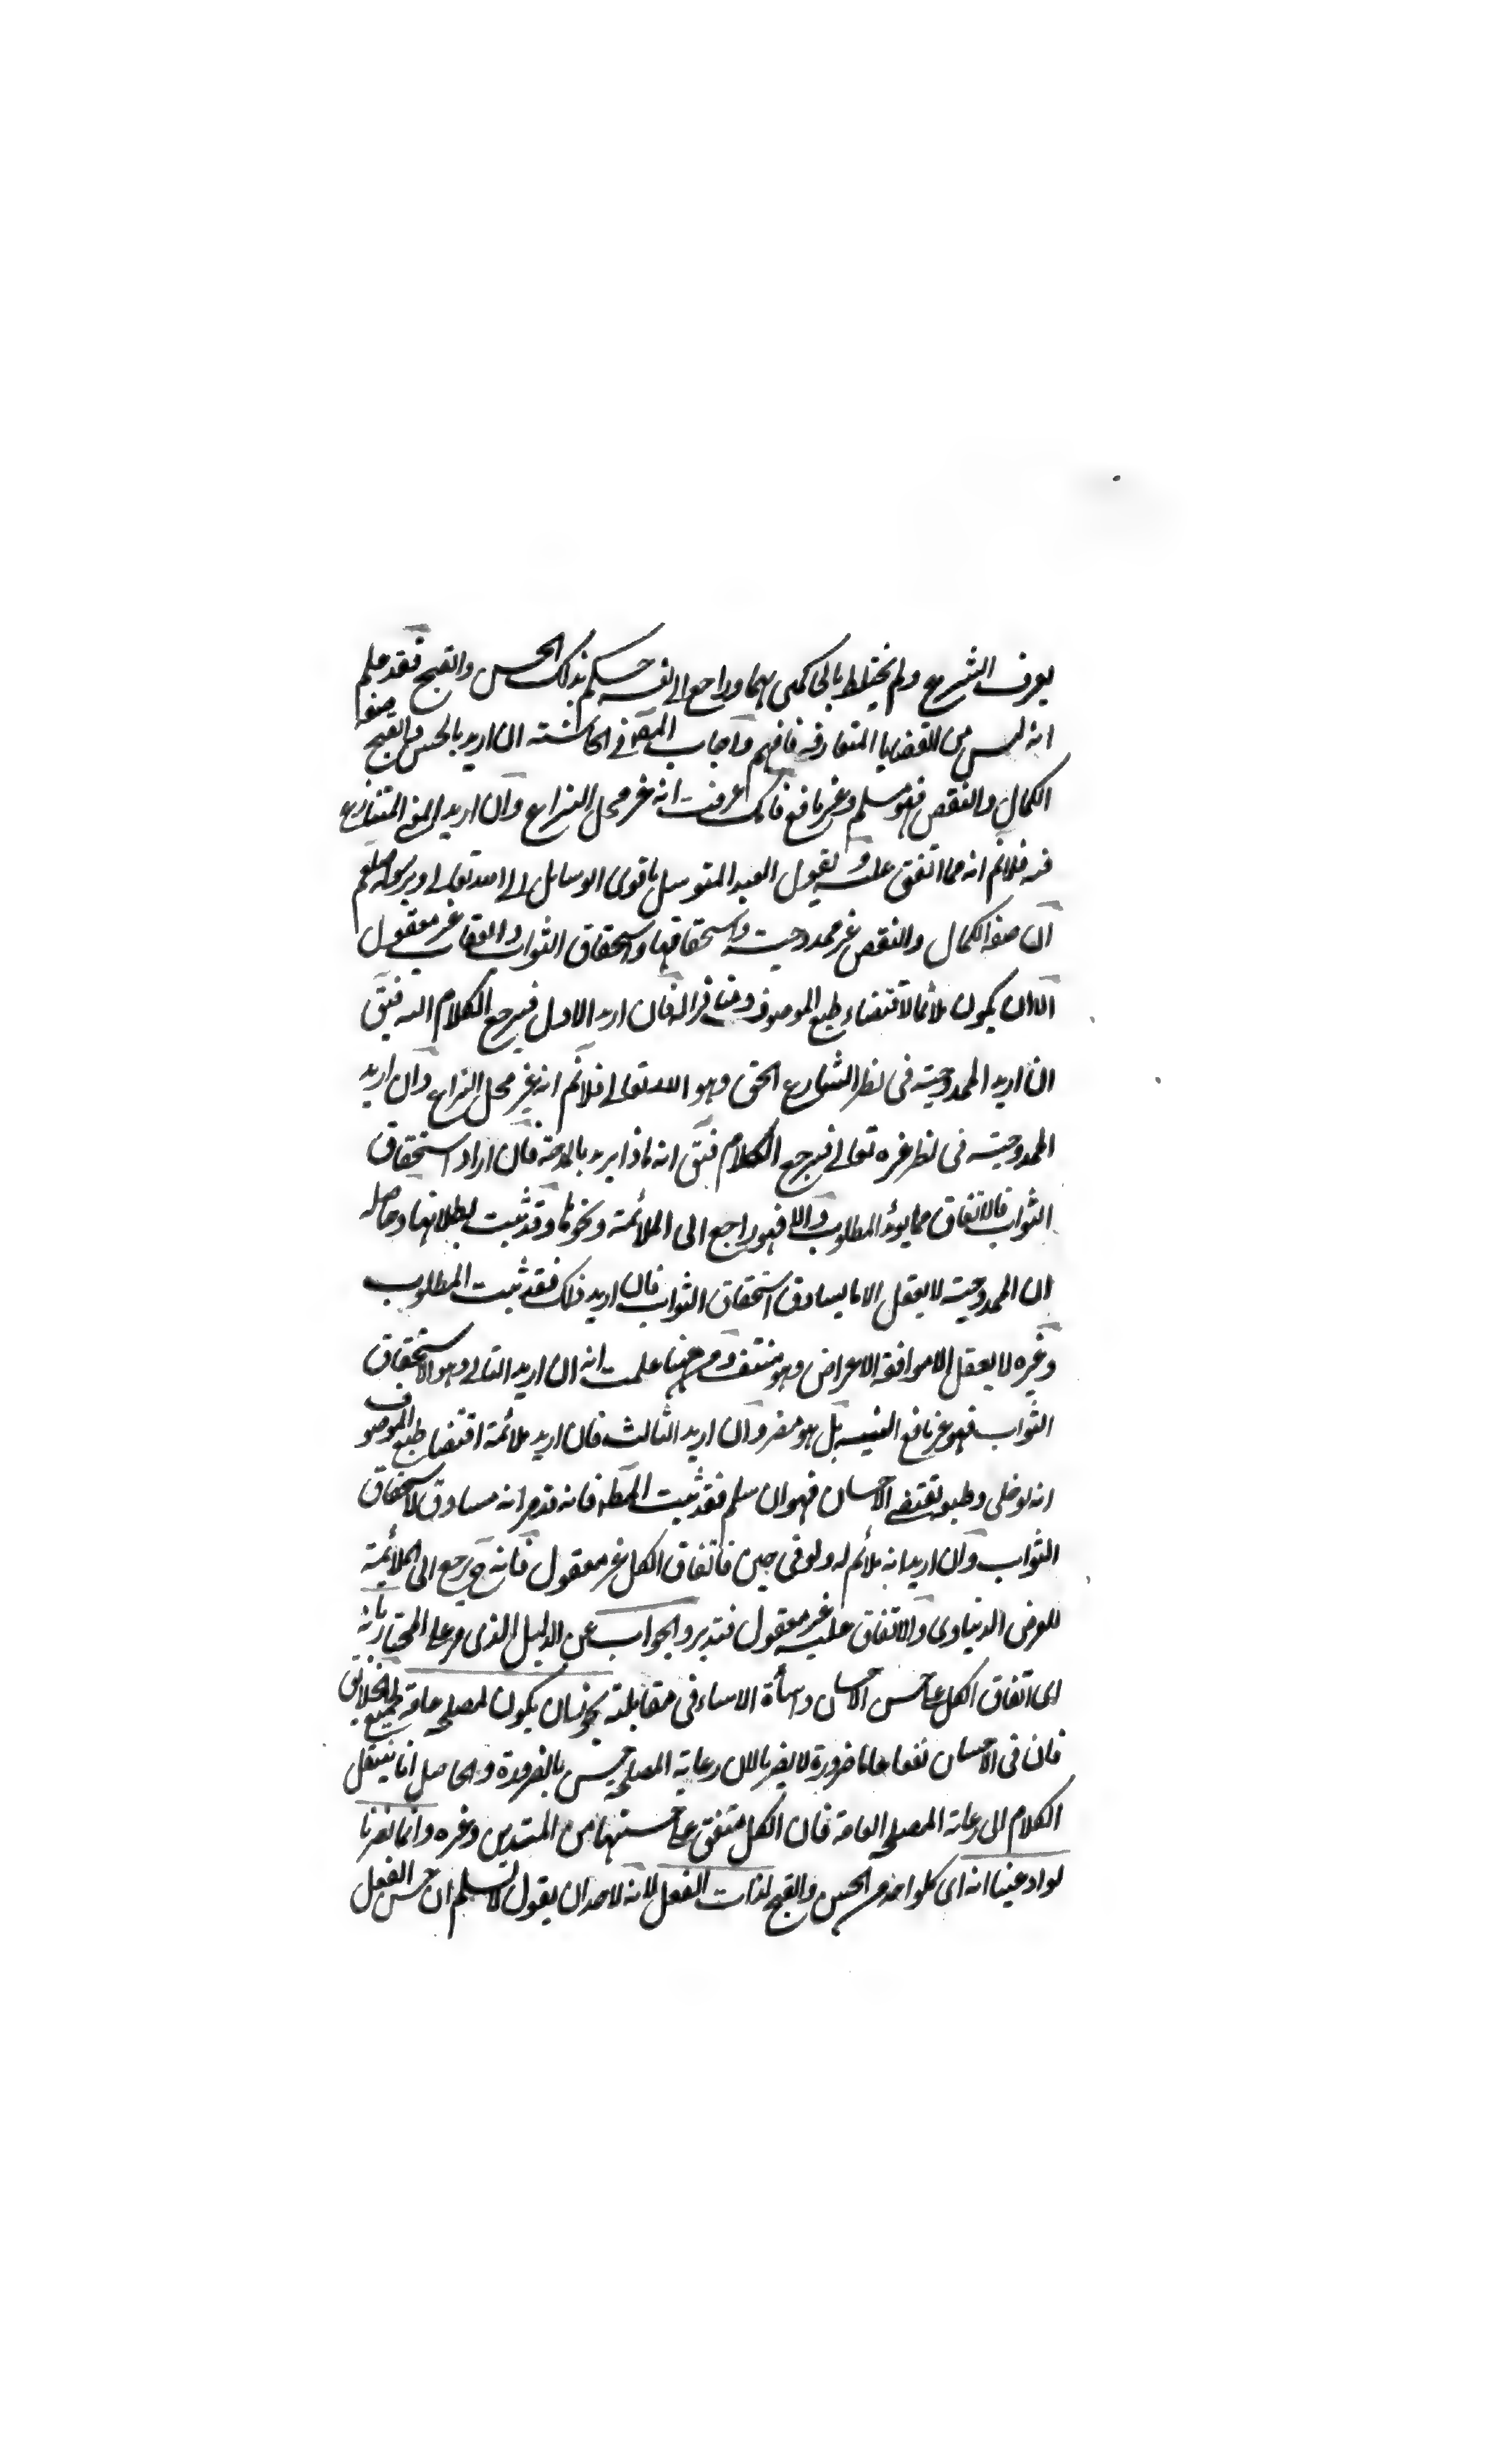 يعرف الشرع ولم يختلط بالحاكمين بهما وراجع الى نفسه حكم بذلك الحسن والقبح فقد علم
انه ليس من القضايا المتعارفة فافهم واجاب المص في الحاشية ان اريد بالحسن والقبح صفة
الكمال والنقص فهو مسلم وغير نافع فانك عرفت انه غير محل النزاع وان اريد المعنى المتنازع
فيه فلانم انه مما اتفق عليه ويقول العبد المتوسل باقوى الوسائل الى الله تعالى وبرسوله صلعم
ان صفة الكمال والنقص غير ممدوحيته واستحقاقها واستحقاق الثواب والعقاب غير معقول
الا ان يكون ملائما لاقتضاء طبع الموصوف ومنافرا له فان اريد الاول فيرجع الكلام اليه فيق
ان اريد الممدوحية في نظر الشارع الحق وهو الله تعالى فلانم انه غير محل النزاع وان اريد
الممدوحية في نظر غيره تعالى فيرجع الكلام فيق انه ماذا يريد بالمدحة فان اراد استحقاق
الثواب فالاتفاق مما يؤيد المطلوب والا فهو راجع الى الملائمة ونحوها وقد ثبت بطلانها وحاصله
ان الممدوحية لا يعقل الا ما يساوق استحقاق الثواب فان اريد ذلك فقد ثبت المطلوب
وغيره لا يعقل الا موافقة الاعراض وهو منتف ومن ههنا علمت انه ان اريد الثاني وهو الاستحقاق
الثواب فهو غير نافع بل هو مضر وان اريد الثالث فان اريد ملائمة اقتضاء طبع الموصوف
انه لو خلى وطبعه يقتضي الاحسان فهو ان سلم فقد ثبت المطلوب فانه قد مر انه مساوق لاستحقاق
الثواب وان اريد انه ملائم له ولو في حين فاتفاق الكل غير معقول فانه ح يرجع الى الملائمة
للغرض الدنياوى والاتفاق عليه غير معقول فتدبر والجواب عن الدليل الذى مر على المختار بانه
اى اتفاق الكل على حسن الاحسان واساءة الاساء فى مقابلته يجوز ان يكون لمصلحة عامة لجميع الخلايق
فان فى الاحسان نفعا عاما ضرورة لا يضرنا لان رعاية المصلحة حسن بالضرورة والحاصل انا ننقل
الكلام الى رعاية المصلحة العامة فان الكل متفق على حسنها من المتدين وغيره وانما يضرنا
لو ادعينا انه اى كلواحد من الحسن والقبح لذات الفعل لانه لاحد ان يقول لا نسلم ان حسن الفعل